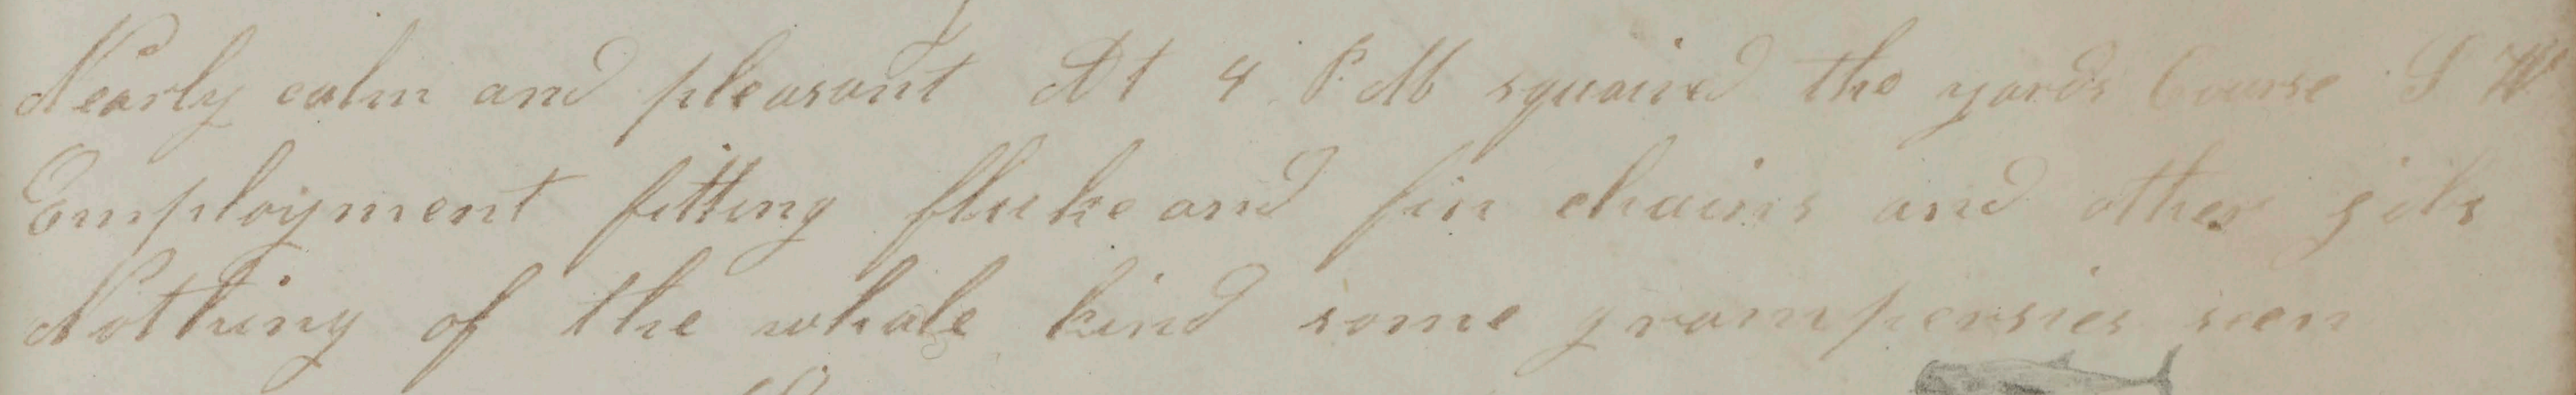 Nearly calm and pleasant At 4 P. M squaired the yards Course S W
Employment fitting fluke and fin chains and other
Nothing of the whale kind some seen